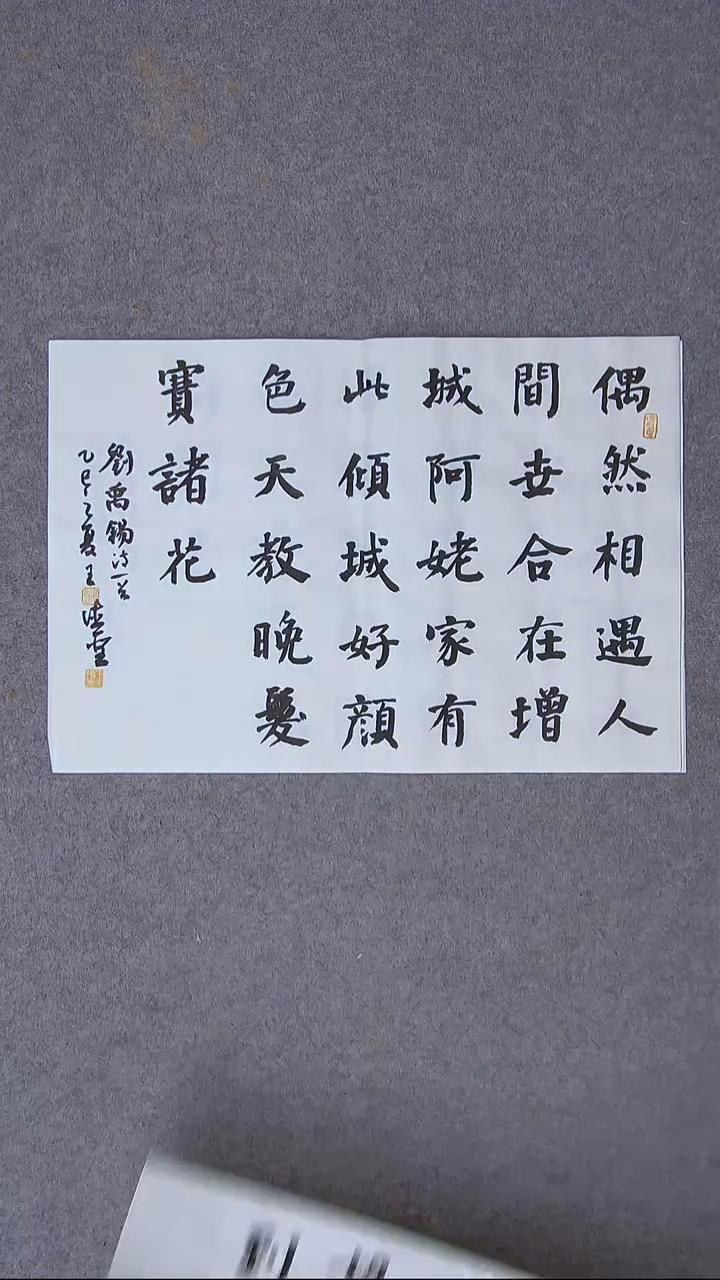 偶然相遇人
間世合在增
城阿姥家有
此傾城好顔
色天教晚發
賽諸花
劉禹錫詩一首
乙巳之夏王